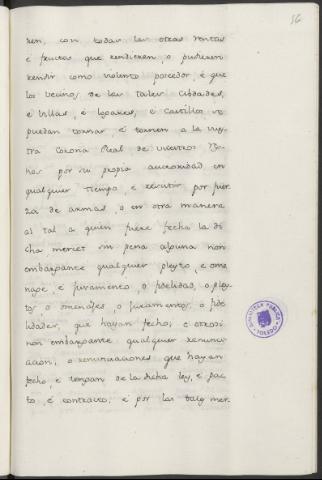 16
sen, con todas las otras rentas
e fructos que rendieren, o pudieren
rendir como violento poseedor, é que
los vecinos de las tales Cibdades,
e Villas, é Logares, é Castillos se
puedan tornar, é tornen a la vues
tra Corona Real de vuestros Rey
nos por su propia auctoridad en
qualquier tiempo, e resistir por fuer
za de armas, o en otra manera
al tal a quien fuere fecha la di
cha merced sin pena alguna non
embargante qualquier pleyto, e ome
nage, é juramento, o fidelidad, o pley
tos, o omenages, o juramentos, o fide
lidades, que hayan fecho; e otrosi
non embargante qualquier renunci
acion, o renunciaciones que hayan
fecho, e tengan de la dicha ley, é pac
to, é contracto, é por las tales mer-
BIBLIOTECA PUBLICA
TOLEDO